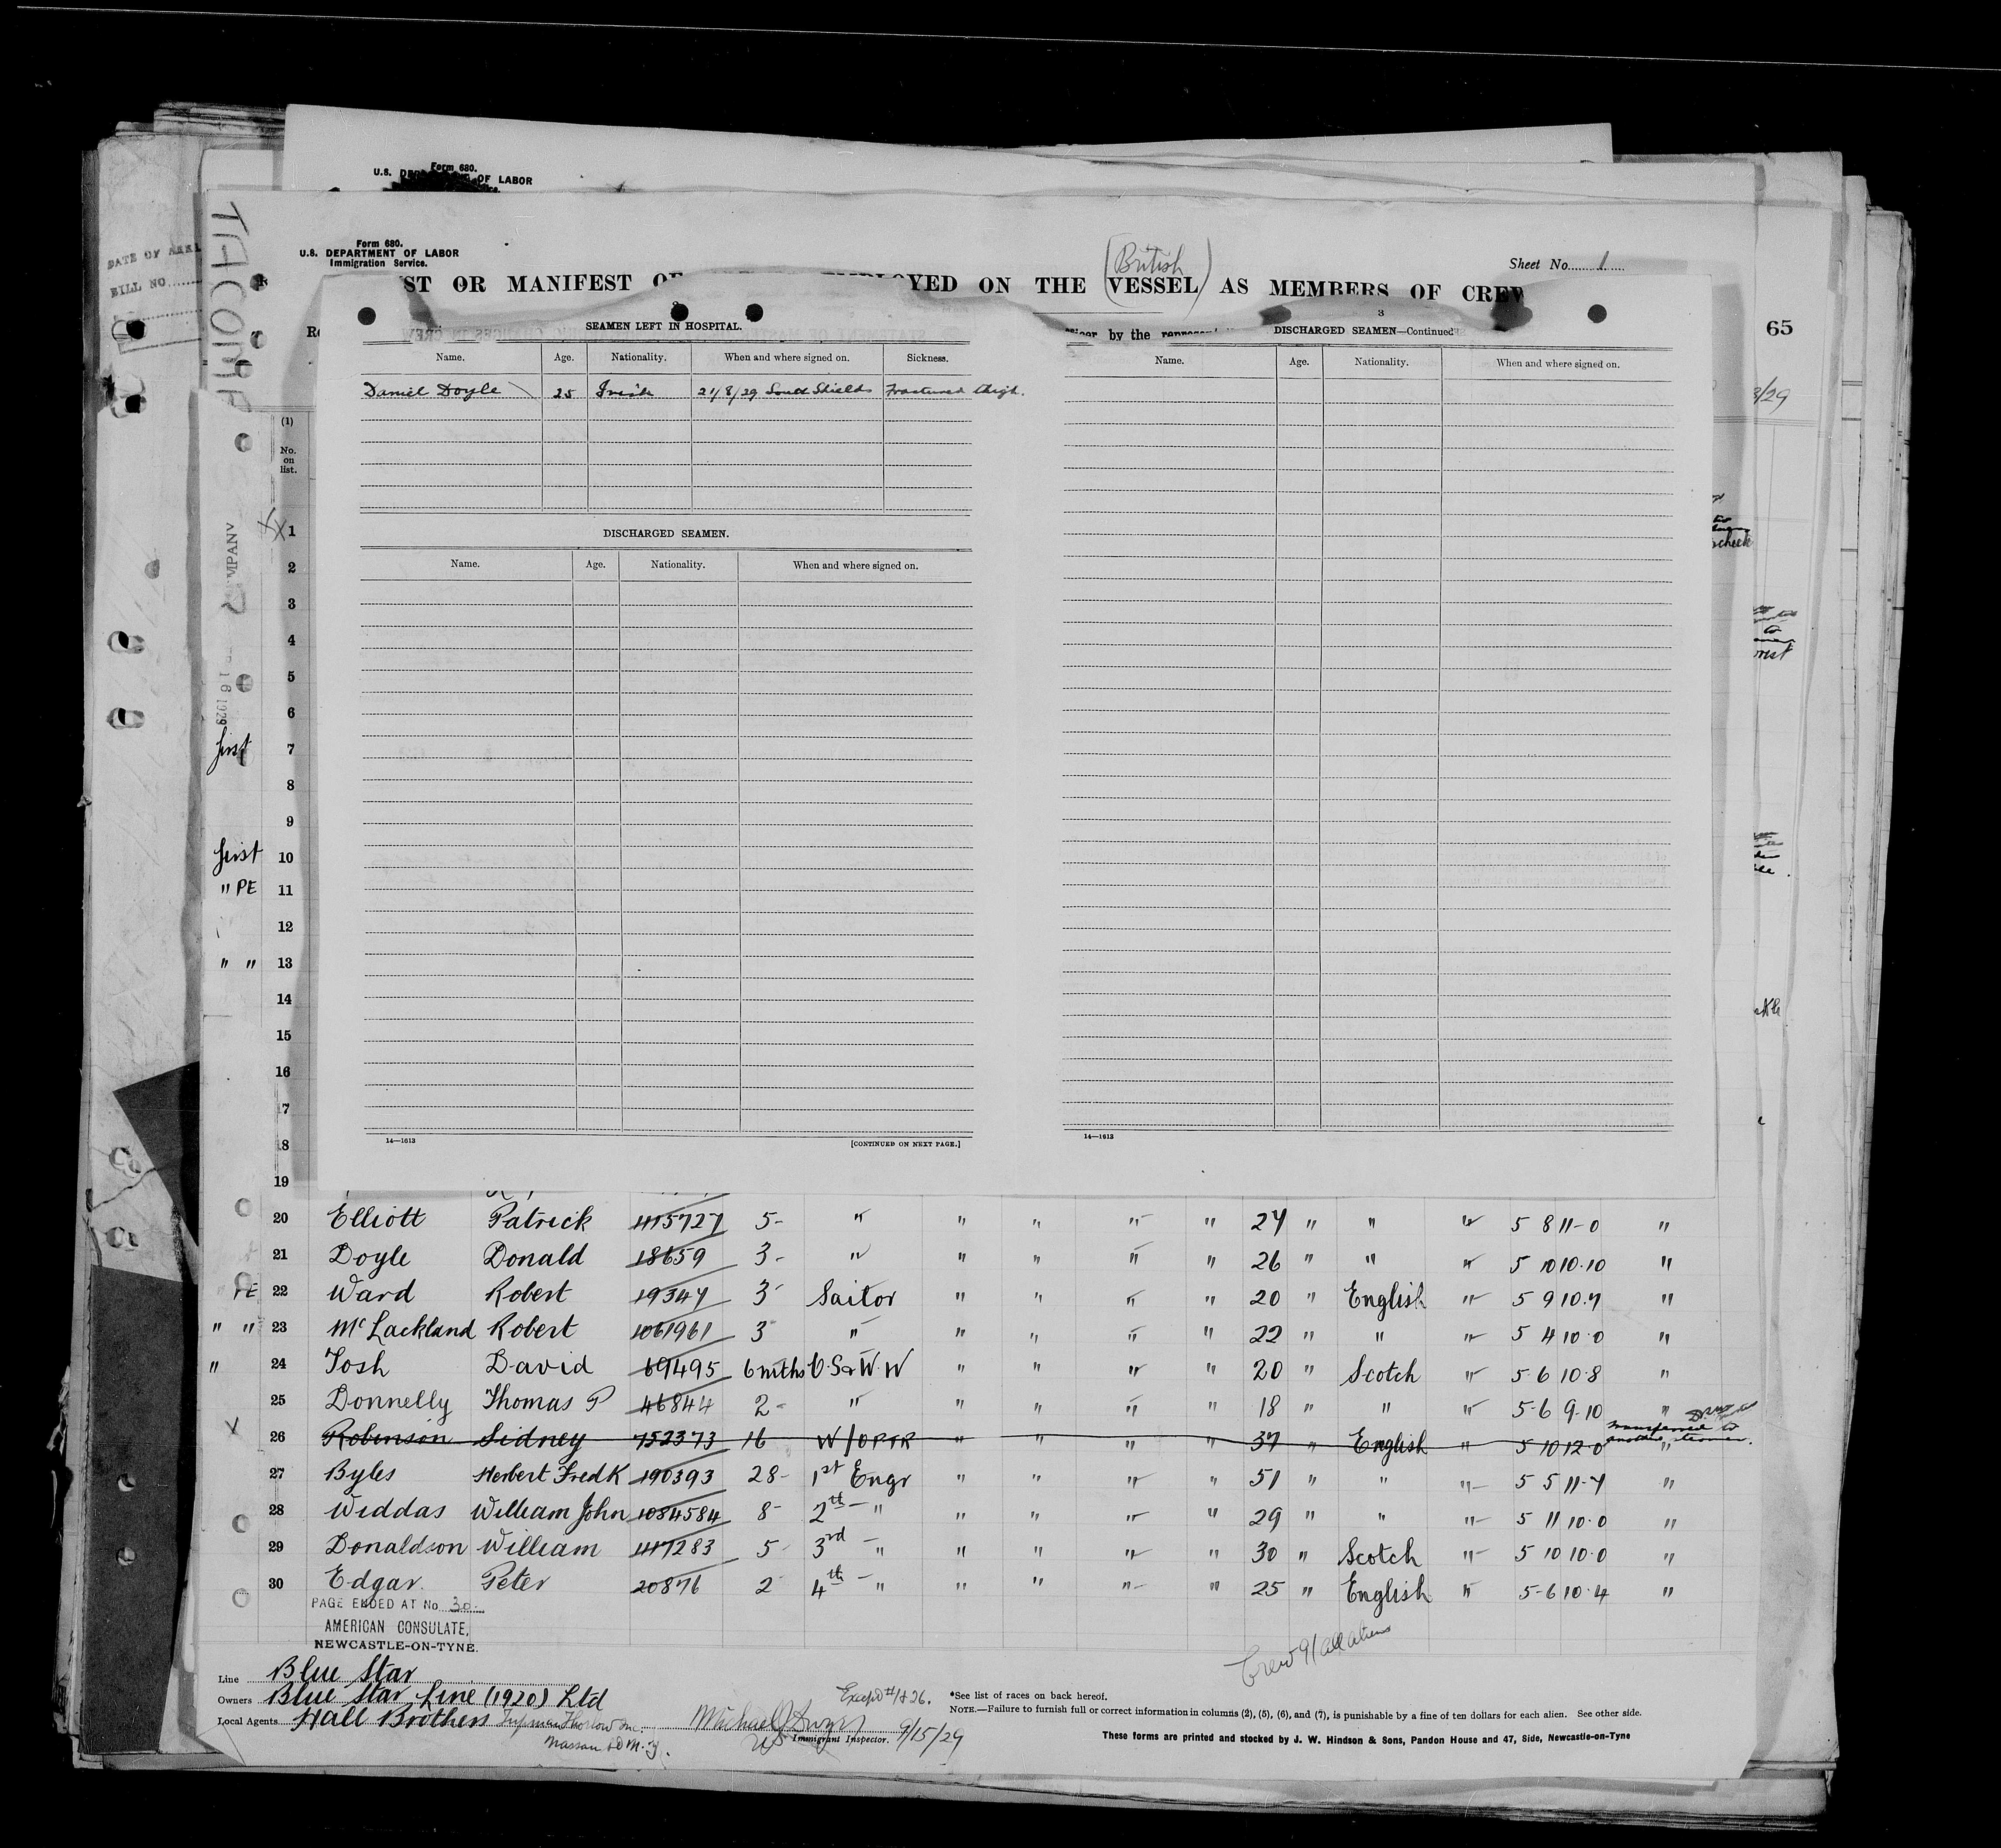 Form 680.
U.S. DEPARTMENT OF LABOR
TACOMA
DATE OF
BILL NO
Form 680.
U.S. DEPARTMENT OF LABOR
Immigration Service.
(British)
Sheet No. 1
ST OR MANIFEST OF EMPLOYED ON THE VESSEL AS MEMBERS OF CREW
65
officer by the
3/29
SEAMEN LEFT IN HOSPITAL.
Name. Age. Nationality. When and where signed on. Sickness.
Daniel Doyle 25 Irish 21/8/29 South Shields Fractured thigh.
DISCHARGED SEAMEN.
Name. Age. Nationality. When and where signed on.
14—1613 [CONTINUED ON NEXT PAGE.]
3
DISCHARGED SEAMEN—Continued
Name. Age. Nationality. When and where signed on.
14—1613
(1)
No. on list.
X X 1
2
3
4
5
6
16 1929
first 7
8
9
first 10
" PE 11
12
" " 13
14
15
16
17
18
19
20 Elliott Patrick 415727 5- " " " " " 27 " " " 5 8 11-0 "
21 Doyle Donald 18659 3- " " " " " 26 " " " 5 10 10.10 "
PE 22 Ward Robert 19347 3 Sailor " " " " 20 " English " 5 9 10.7 "
" " 23 McLackland Robert 1061961 3 " " " " " 22 " " " 5 4 10.0 "
" 24 Tosh David 69495 6 mths O.S & W.W " " " " 20 " Scotch " 5-6 10.8 "
25 Donnelly Thomas P 46844 2- " " " " " 18 " " " 5-6 9-10 "
X 26 Robinson Sidney 752373 16 W/OPTR " " " " 37 " English " 5 10 12-0 " transferred to another steamer.
27 Byles Herbert Fredk 190393 28- 1st Engr " " " " 51 " " " 5 5 11-7 "
28 Widdas William John 1084584 8- 2th " " " " " 29 " " " 5 11 10.0 "
29 Donaldson William 417283 5 3rd " " " " " 30 " Scotch " 5 10 10.0 "
30 Edgar Peter 20876 2 4th " " " " " 25 " English " 5-6 10.4 "
PAGE ENDED AT No 30
AMERICAN CONSULATE,
NEWCASTLE-ON-TYNE.
Crew 91 all aliens
Line Blue Star
Owners Blue Star Line (1920) Ltd
Local Agents Hall Brothers
Except #1 & 26.
Immigrant Inspector. 9/15/29
*See list of races on back hereof.
NOTE.—Failure to furnish full or correct information in columns (2), (5), (6), and (7), is punishable by a fine of ten dollars for each alien. See other side.
These forms are printed and stocked by J. W. Hindson & Sons, Pandon House and 47, Side, Newcastle-on-Tyne